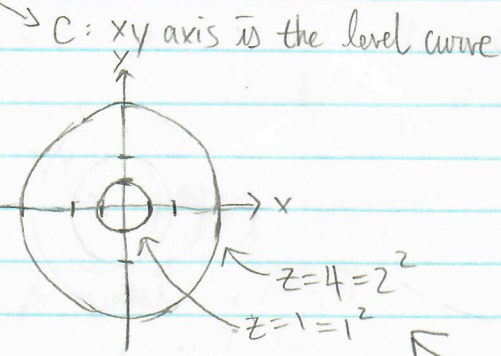 C: xy axis is the level curve
y
x
z=4=2²
z=1=1²